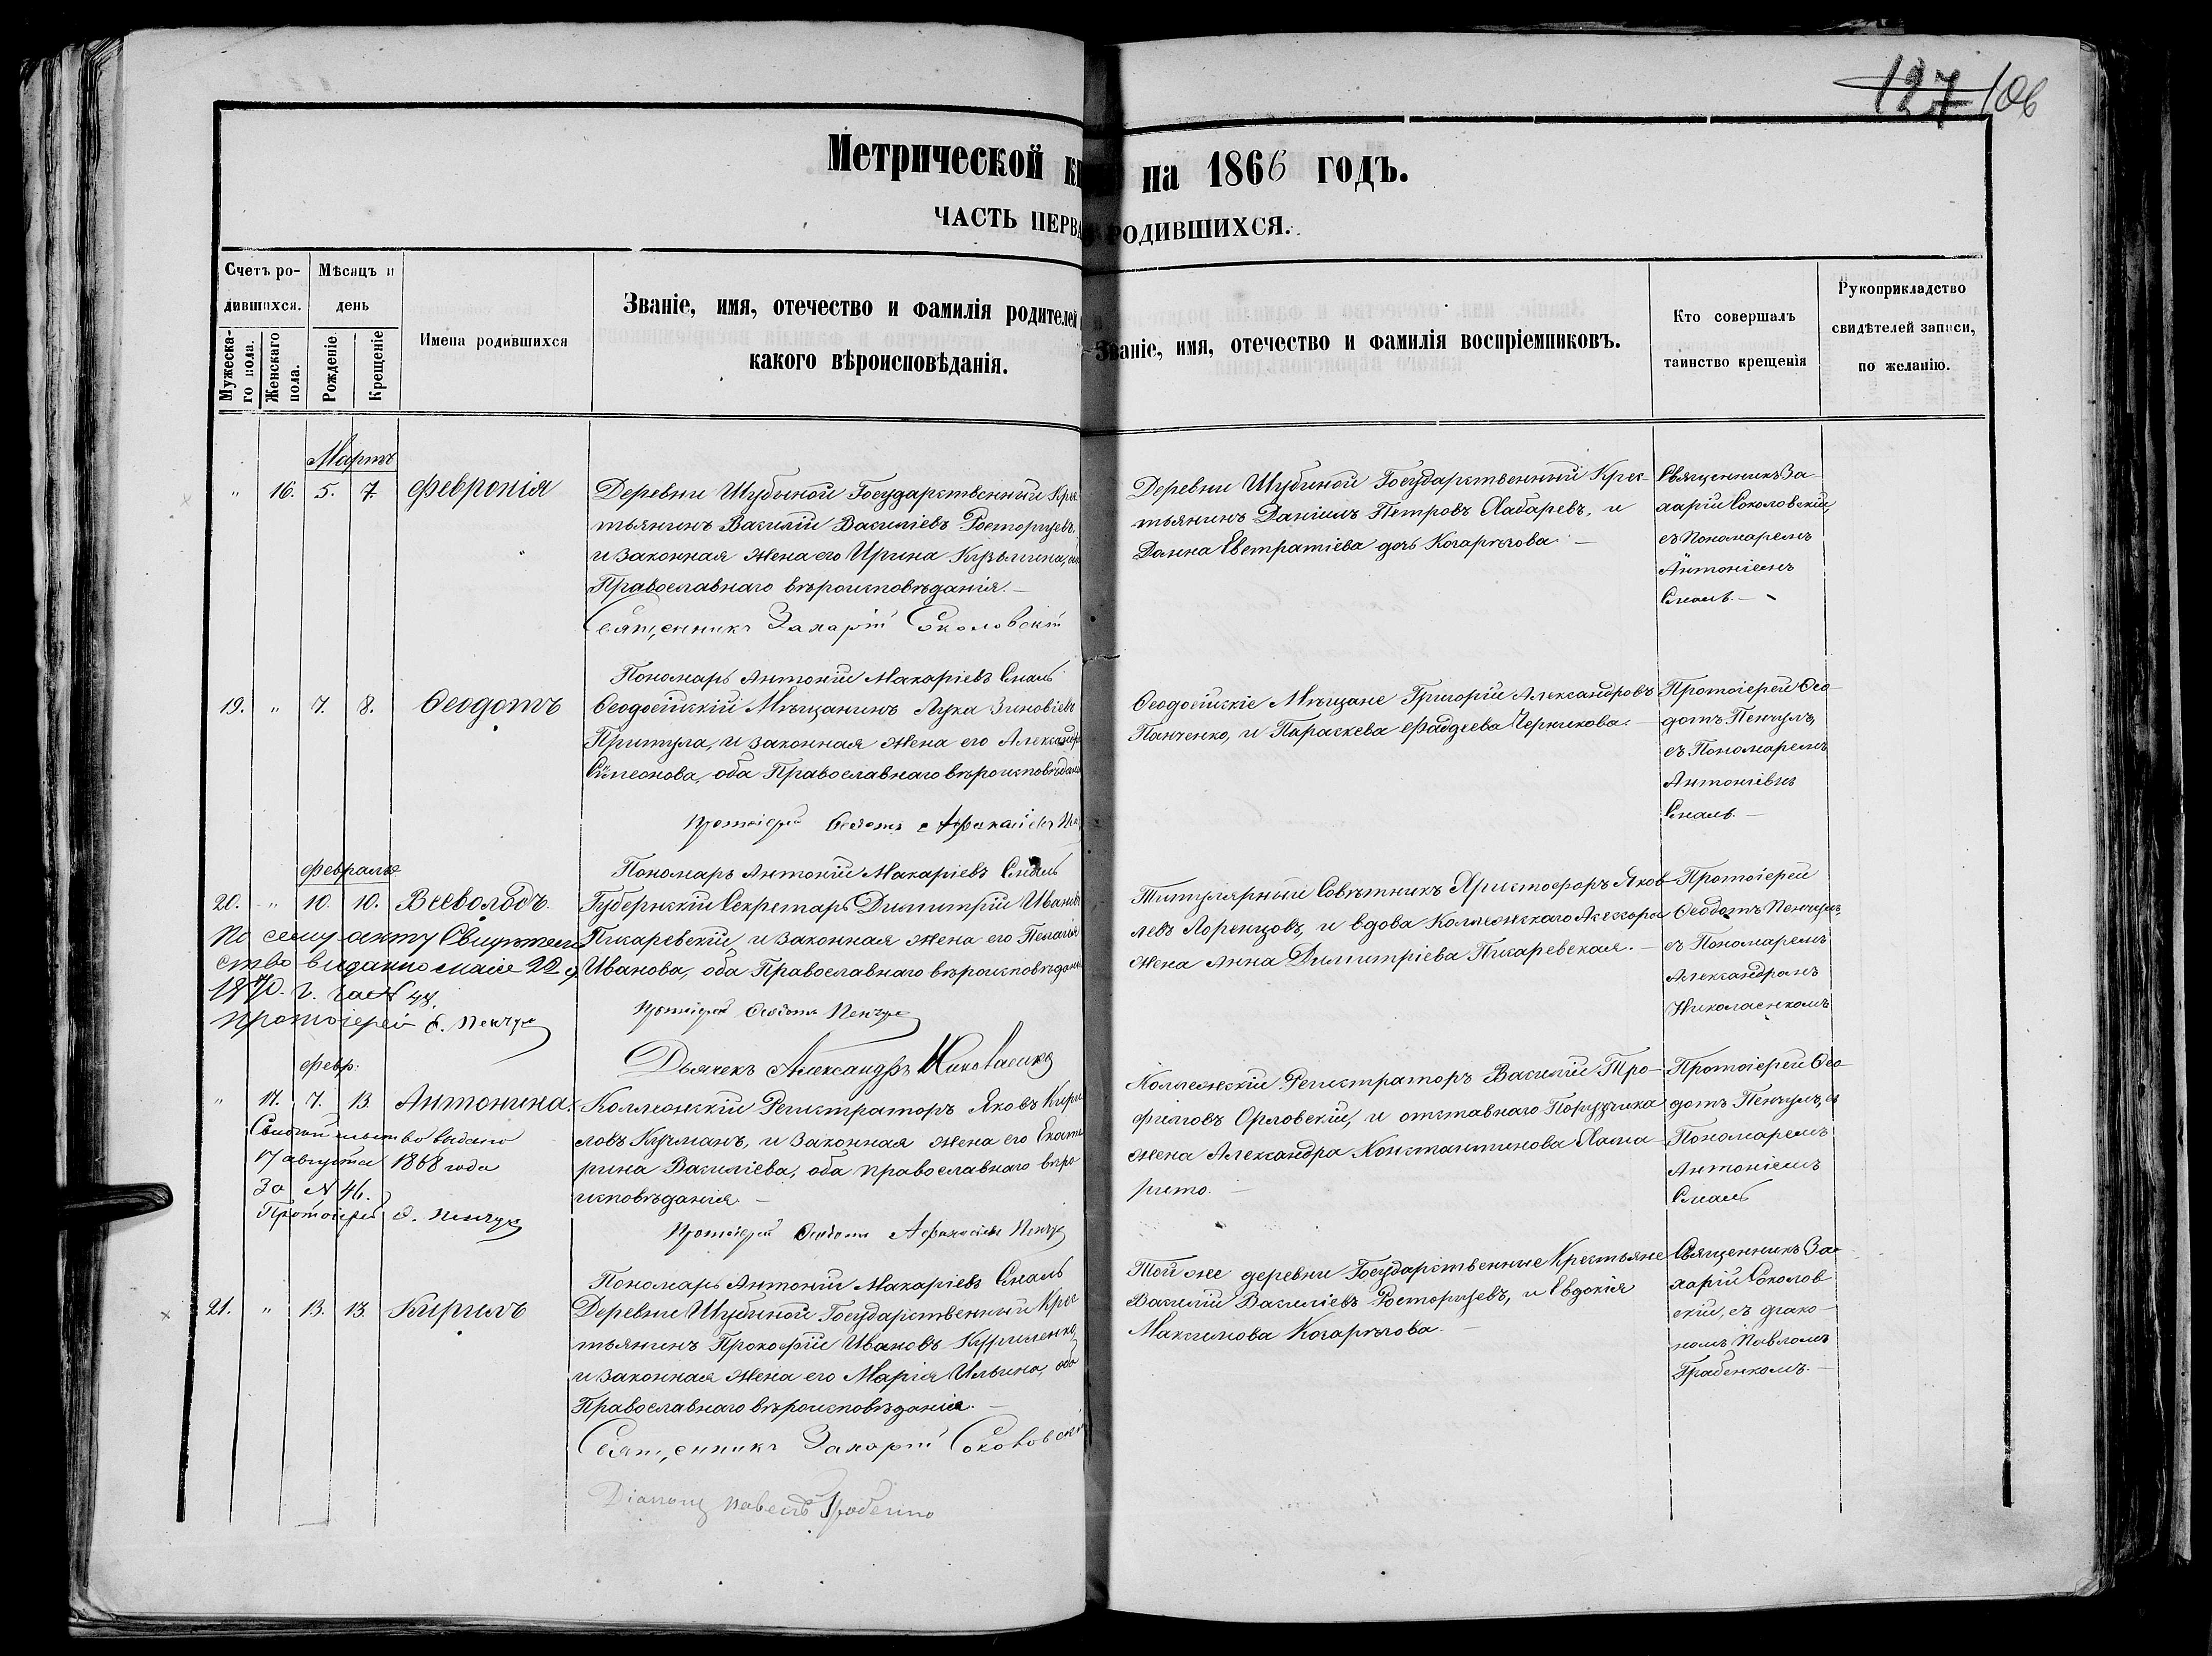 127 106
Метрической кн на 1866 годъ.
ЧАСТЬ ПЕРВА РОДИВШИХСЯ.
Счетъ ро-
дившихся.
Мужеска-
го пола.
Женскаго
пола.
Мѣсяцъ и
день
Рожденіе.
Крещеніе
Имена родившихся
Званіе, имя, отечество и фамилія родителей
какого вѣроисповѣданія.
Званіе, имя, отечество и фамилія воспріемниковъ.
Кто совершалъ
таинство крещенія
Рукоприкладство
свидѣтелей записи,
по желанію.
Мартъ
" 16. 5. 7. Февронія
Деревни Шубиной Государственный Крес
тьянинъ Василій Василіевъ Расторгуевъ
и законная жена его Ирина Кузьмина,
Православнаго вѣроисповѣданія. —
Священникъ Захарій Соколовскій
Пономарь Антоній Макаріевъ Смаль
Деревни Шубиной Государственный Крес-
тьянинъ Даніилъ Петровъ Хабаревъ, и
Домна Евстратіева дочь Кочаргова —
Священникъ За
харій Соколовскій,
съ Пономаремъ
Антоніемъ
Смаль. —
19. " 7. 8. Ѳеодотъ
Ѳеодосійскій Мѣщанинъ Лука Зиновіевъ
Притула, и законная жена его Александра
Симеонова, оба Православнаго вѣроисповѣдан
Протоіерей Ѳеодотъ Афанасіевъ
Пономарь Антоній Макаріевъ Смаль
Ѳеодосійскіе Мѣщане Григорій Александровъ
Панченко, и Параскева Фаддеева Черникова. —
Протоіерей Ѳео-
дотъ Пенчулъ,
съ Пономаремъ
Антоніемъ
Смаль. —
Февраль
20. " 10. 10. Всеволодъ.
По сему акту Свидѣтель
ство выдано мая 22 д
1870. г. за № 48.
Протоіерей Ѳ. Пенчул
Губернскій Секретарь Димитрій Иванов
Писаревскій, и законная жена его Пелагія
Иванова, оба Православнаго вѣроисповѣдан
Протоіерей Ѳеодотъ Пенчул
Дьячекъ Александръ Николаенко
Титулярный Совѣтникъ Христофоръ Яков-
левъ Лоренцовъ, и вдова Коллежскаго Ассесора
жена Анна Димитріева Писаревская. —
Протоіерей
Ѳеодотъ Пенчулъ,
съ Пономаремъ
Александромъ
Николаенкомъ
Февр.
" 17. 7. 13. Антонина.
Свидѣтельство выдано
17 августа 1868 года
За № 46.
Протоіерей Ѳ. Пенчул
Коллежскій Регистраторъ Яковъ Кири
ловъ Кучманъ, и законная жена его Екате
рина Василіева, оба православнаго вѣро
исповѣданія —
Протоіерей Ѳеодотъ Афанасіевъ Пенчул
Пономарь Антоній Макаріевъ Смаль
Коллежскій Регистраторъ Василій Тро-
фимовъ Орловскій, и отставнаго Поручика
жена Александра Константинова Хама-
рито. —
Протоіерей Ѳео-
дотъ Пенчулъ, съ
Пономаремъ
Антоніемъ
Смаль
21. " 13. 13. Кирилъ
Деревни Шубиной Государственный Крес
тьянинъ Прокофій Ивановъ Куриленко,
и законная жена его Марія Ильина, оба
Православнаго вѣроисповѣданія. —
Священникъ Захарій Соколовскій
Діаконъ Павелъ Грабенко
Той же деревни Государственные Крестьяне
Василій Василіевъ Расторгуевъ, и Евдокія
Максимова Кочаргова. —
Священникъ За-
харій Соколов
скій, съ діако-
номъ Павломъ
Грабенкомъ. —